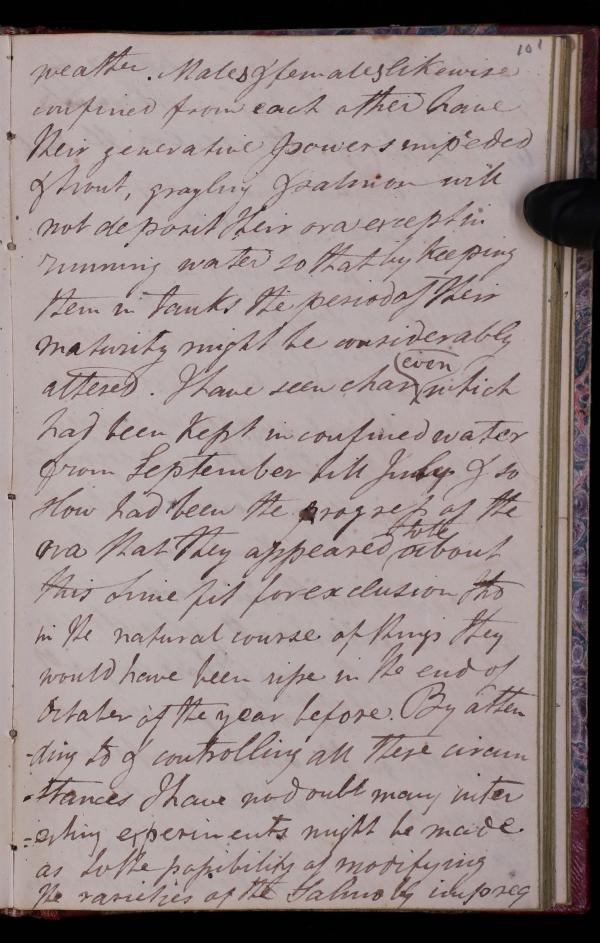 101
weather. Males & females likewise
confined from each other have
their generative powers impeded
& trout, grayling & salmon will
not deposit their ova except in
running water so that by keeping
them in tanks the period of their
maturity might be considerably
(even
altered. I have seen char which
had been kept in confined water
from September till July & so
slow had been the progress of the
to be
ova that they appeared about
this time fit for exclusion tho
in the natural course of things they
would have been ripe in the end of
October of the year before. By atten
-ding to & controlling all these circum
-stances I have no doubt many inter
-esting experiments might be made
as to the possibility of modifying
the varieties of the Salmo by impreg